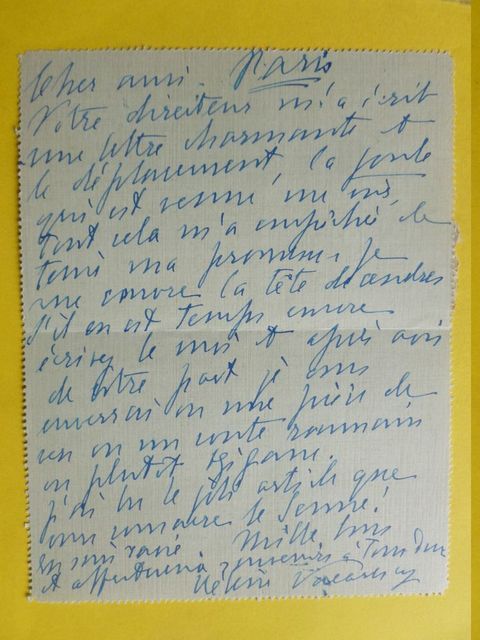 Cher ami. Paris
Votre directeur m'a écrit
une lettre charmante et
le déplacement, la foule
qui est venue me voir,
tout cela m'a empêchée de
tenir ma promesse. Je
me couvre la tête de cendres
S'il en est temps encore
écrivez le moi et après avis
de votre part je vous
enverrai ou une pièce de
vers ou un conte roumain
ou plutôt tzigane.
J'ai lu le joli article que
vous consacre le
en suis ravie Mille bons
et affectueux souvenirs à Tous deux
Hélène Vacaresco